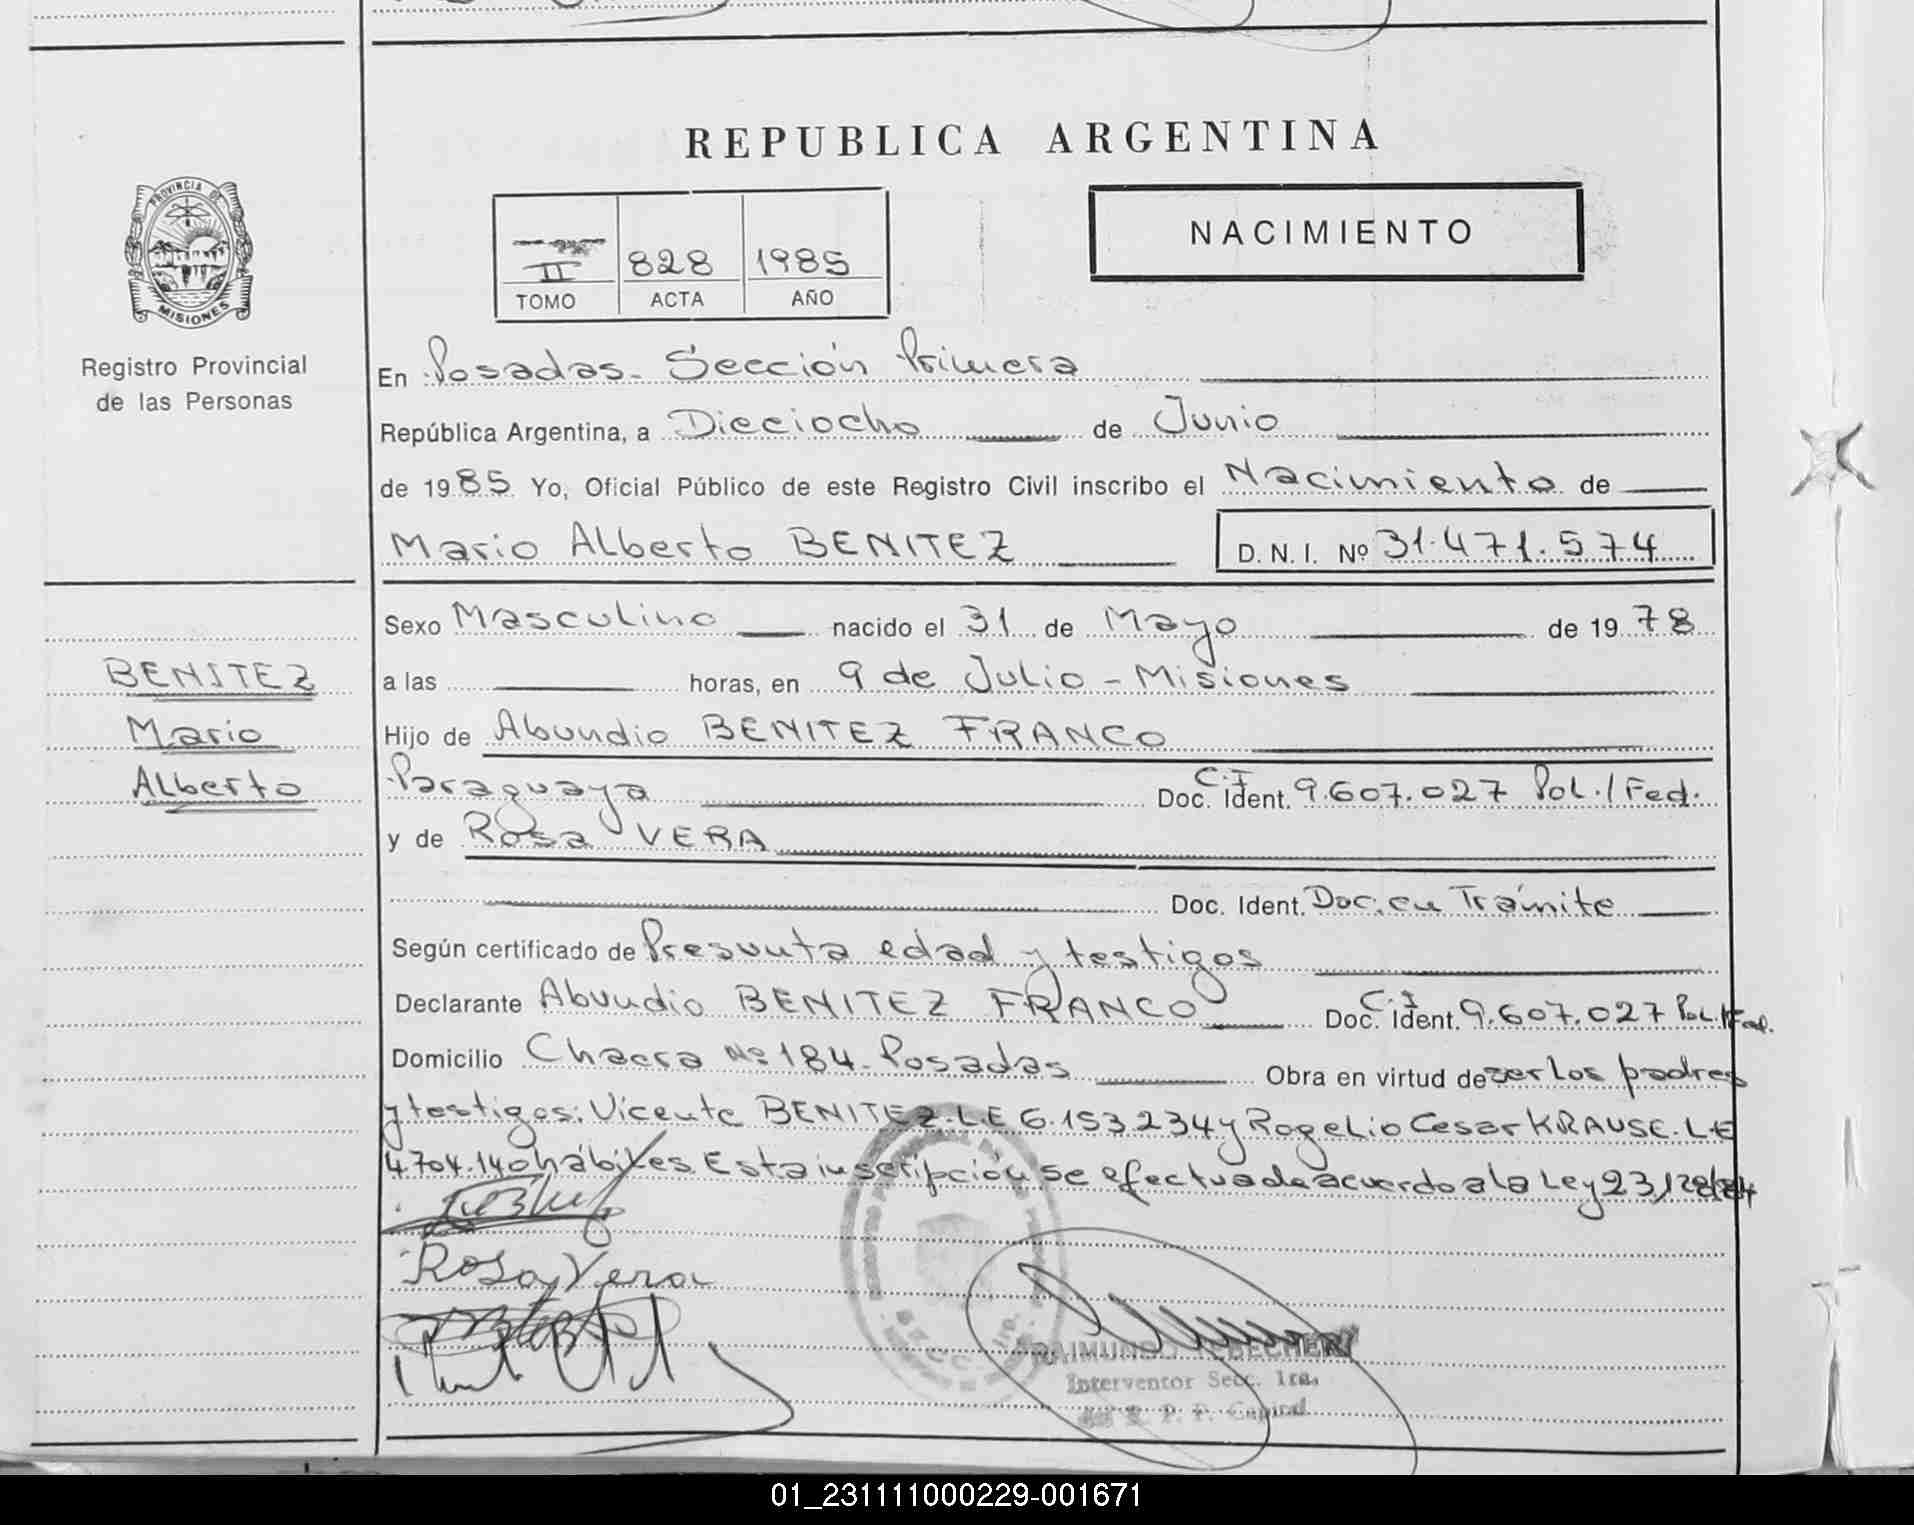 REPUBLICA ARGENTINA
PROVINCIA DE
MISIONES
Registro Provincial
de las Personas
NACIMIENTO
II 828 1985
TOMO ACTA AÑO
En Posadas. Sección Primera
República Argentina, a Dieciocho de Junio
de 1985 Yo, Oficial Público de este Registro Civil inscribo el Nacimiento de
Mario Alberto BENITEZ D.N.I. Nº 31.471.574
BENITEZ
Mario
Alberto
Sexo Masculino nacido el 31 de Mayo de 1978
a las horas, en 9 de Julio - Misiones
Hijo de Abundio BENITEZ FRANCO
Paraguaya Doc. Ident. C.I 9.607.027 Pol./Fed.
y de Rosa VERA
Doc. Ident. Doc. en Trámite
Según certificado de Presunta edad y testigos
Declarante Abundio BENITEZ FRANCO Doc. Ident. C.I 9.607.027 Pol./Fed.
Domicilio Chacra Nº 184. Posadas Obra en virtud de ser los padres
y testigos: Vicente BENITEZ. L.E 6.153.234 y Rogelio Cesar KRAUSE. L.E
4.704.140 hábiles. Esta inscripción se efectua de acuerdo a la Ley 23,128/84
Rosa Vera
RAIMUNDO
Interventor Secc. 1ra.
R. P. P. Capital
01_231111000229-001671